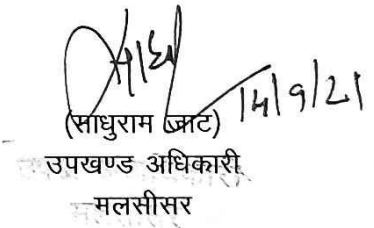 14/9/21
(साधुराम जाट)
उपखण्ड अधिकारी
मलसीसर